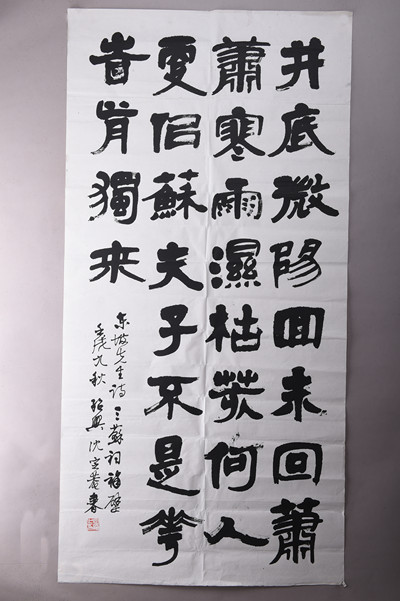 井底微陽回未回蕭
蕭寒雨濕枯荄何人
更佀蘇夫子不是花
旹肯獨來
東坡先生詩 三蘇祠補壁
壬戌九秋 紹興沈定菴書